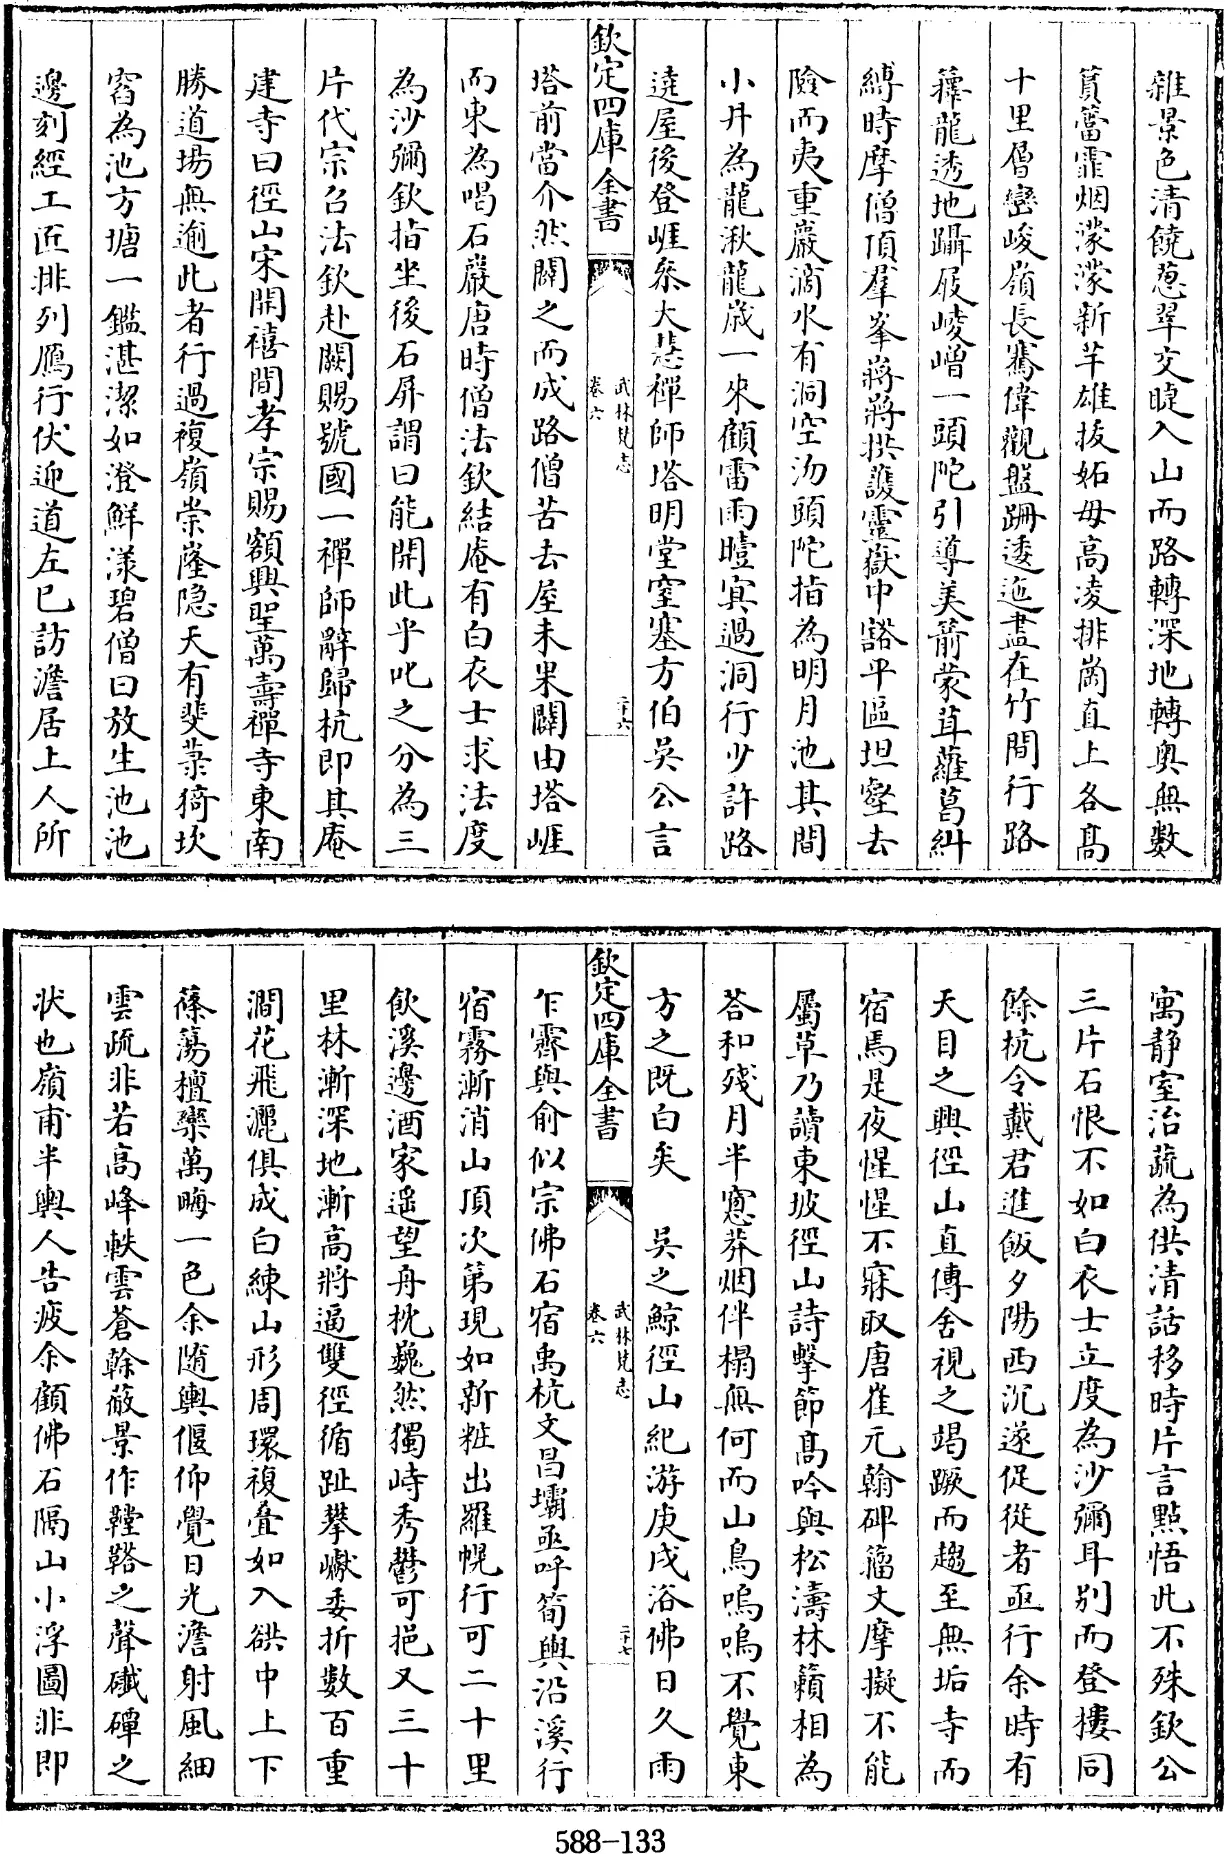 雜景色清饒蔥翠交睫入山而路轉深地轉奥無數
篔簹霏烟濛濛新竿雄拔妬母高凌排崗直上各髙
十里層巒峻嶺長騫偉觀盤跚逶迤盡在竹間行路
籜龍透地躡屐崚嶒一頭陀引導美箭蒙茸蘿葛糾
縛時摩僧頂羣峯蔣蔣拱護靈嶽中豁平區坦壑去
險而夷重巖滴水有洞空汋頭陀指為明月池其間
小井為龍湫龍歳一來顧雷雨曀寘過洞行少許路
遶屋後登崕叅大慧禪師塔明堂窒塞方伯吴公言
欽定四庫全書
武林梵志
卷六
二十六
塔前當介然闢之而成路僧苦去屋未果闢由塔崕
而東為喝石巖唐時僧法欽結庵有白衣士求法度
為沙彌欽指坐後石屏謂曰能開此乎叱之分為三
片代宗召法欽赴闕賜號國一禪師辭歸杭即其庵
建寺曰徑山宋開禧間孝宗賜額興聖萬壽禪寺東南
勝道場無逾此者行過複嶺崇窿隐天有斐菉猗坎
窞為池方塘一鑑湛潔如澄鮮漾碧僧曰放生池池
邊刻經工匠排列鴈行伏迎道左已訪澹居上人所
寓静室治蔬為供清話移時片言點悟此不殊欽公
三片石恨不如白衣士立度為沙彌耳别而登摟同
餘杭令戴君進飯夕陽西沉遂促從者亟行余時有
天目之興徑山直傳舍視之竭蹶而趨至無垢寺而
宿焉是夜惺惺不寐取唐崔元翰碑籀文摩擬不能
屬草乃讀東坡徑山詩擊節髙吟與松濤林籟相為
荅和殘月半窻莽烟伴榻無何而山鳥嗚嗚不覺東
方之既白矣　吳之鯨徑山紀游庚戌浴佛日久雨
欽定四庫全書
武林梵志
卷六
二十七
乍霽與俞似宗佛石宿禹杭文昌壩亟呼筍輿沿溪行
宿霧漸消山頂次第現如新粧出羅幌行可二十里
飲溪邊酒家遥望舟枕巍然獨峙秀鬱可挹又三十
里林漸深地漸高將逼雙徑循趾攀巘委折數百重
澗花飛灑俱成白練山形周環複疊如入谼中上下
篠蕩檀欒萬畮一色余随輿偃仰覺日光澹射風細
雲疏非若高峰軼雲蒼榦蔽景作鞺鞳之聲巇磾之
狀也嶺甫半輿人告疲余顧佛石隔山小浮圖非即
588-133